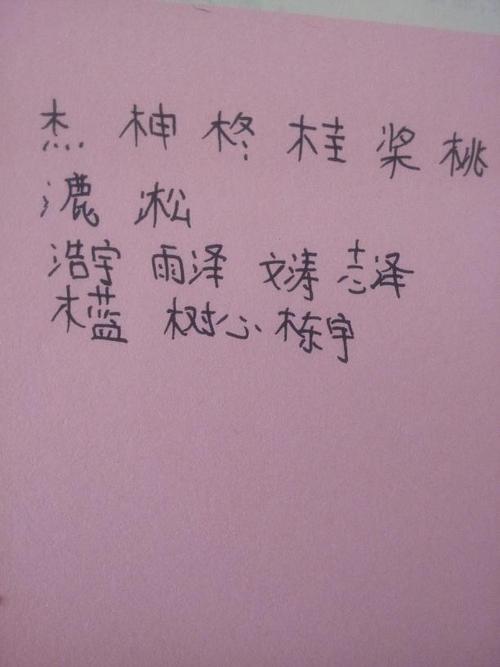 杰 柛 柊 桂 桨 桃
漉 淞
浩宇 雨泽 文涛 志泽
木蓝 树心 栋宇